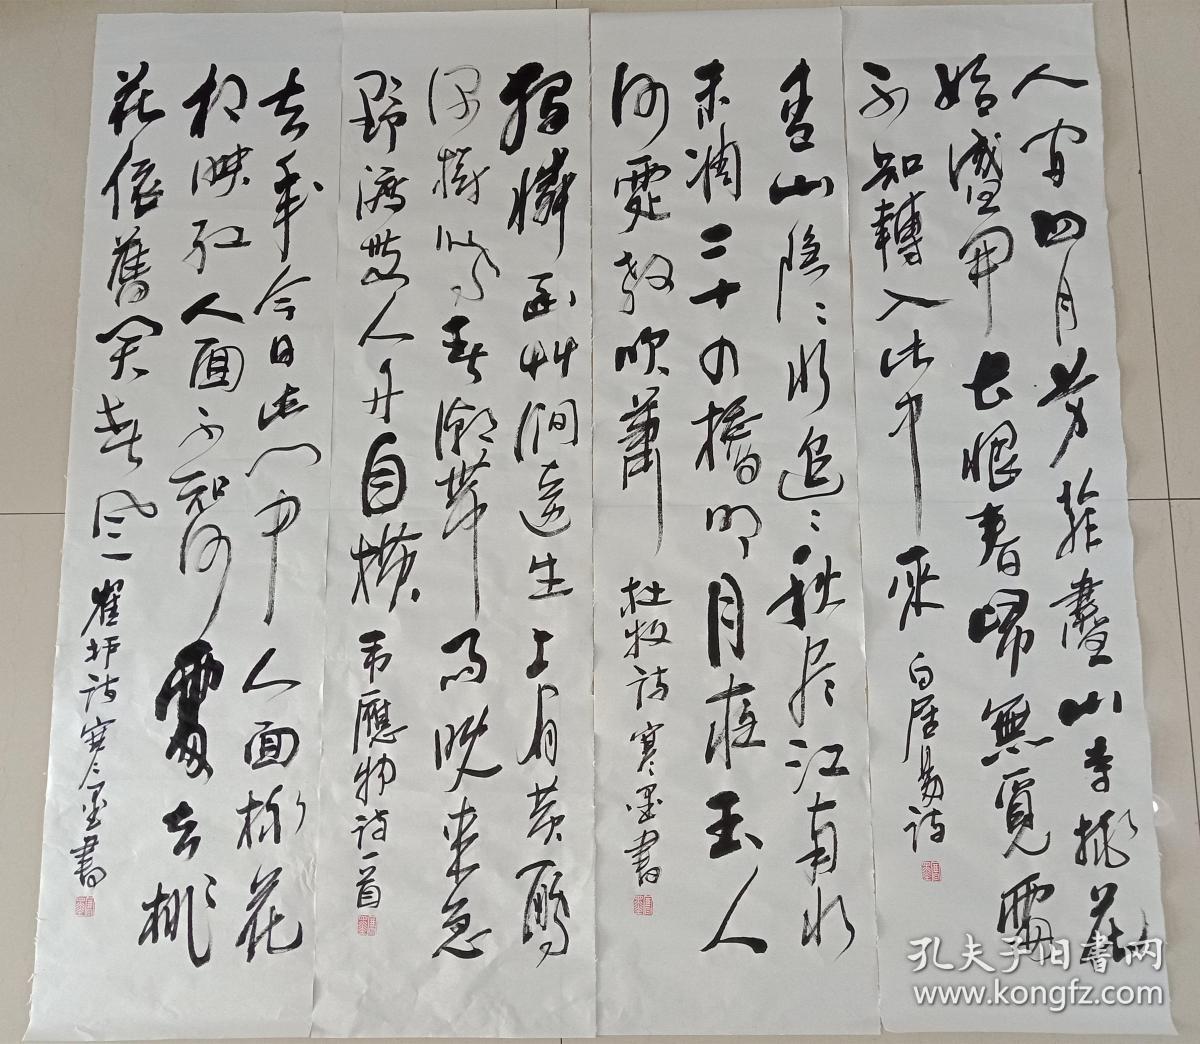 人间四月芳菲盡山寺桃花
始盛開長恨春歸無覓處
不知轉入此中來 白居易诗
青山隐〻水迢〻秋尽江南水
未凋二十四橋明月夜玉人
何處教吹蕭 杜牧诗寒墨書
獨憐幽艸澗邊生上有黄鸝
深樹鳴春潮帶雨晚来急
野渡無人舟自横 韦應物诗一首
去年今日此门中人面桃花
相映红人面不知何處去桃
花依舊笑春风 崔护诗寒墨書
孔夫子旧书网
www.kongfz.com